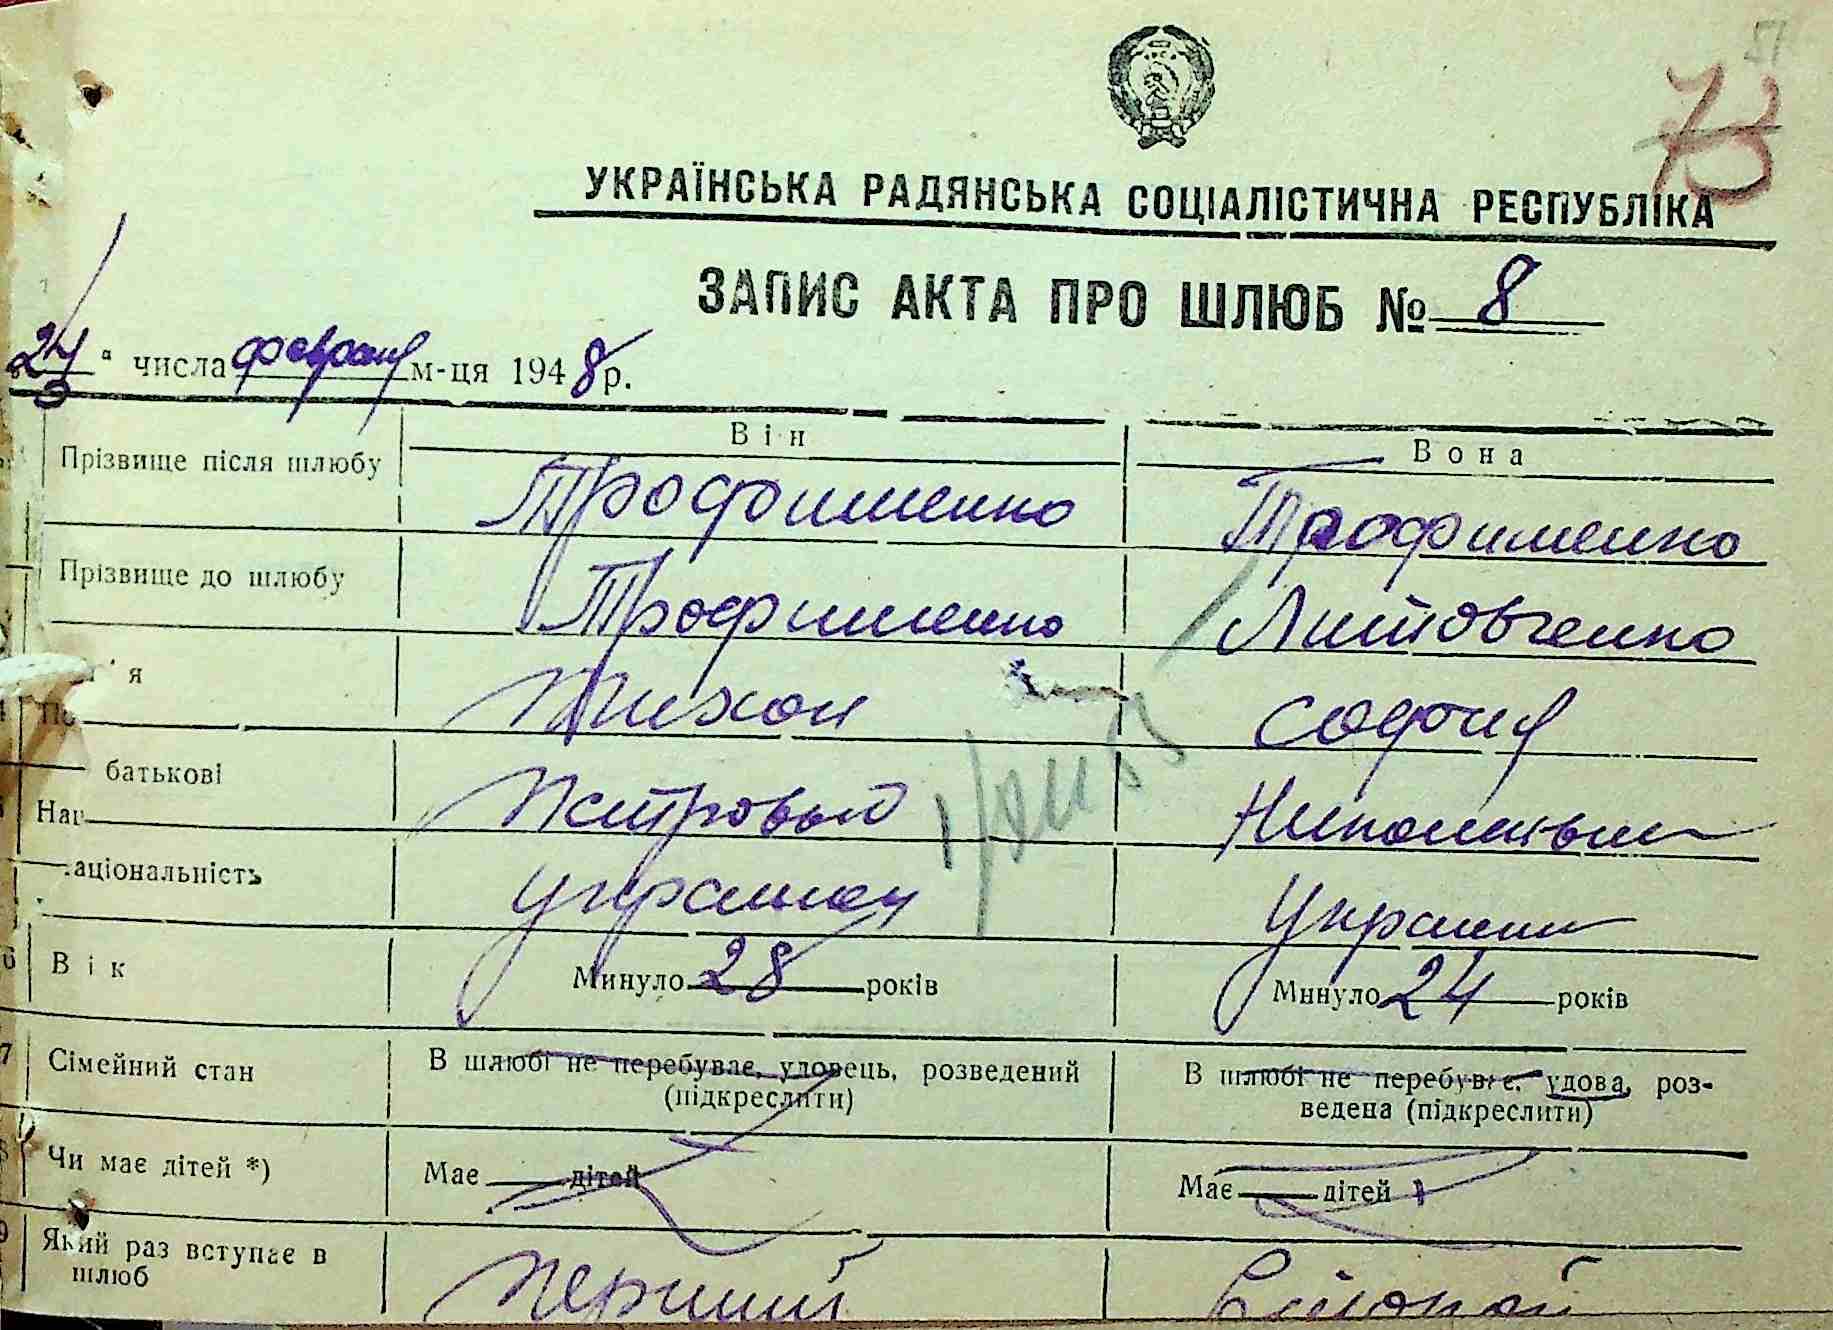 73
УКРАЇНСЬКА РАДЯНСЬКА СОЦІАЛІСТИЧНА РЕСПУБЛІКА
ЗАПИС АКТА ПРО ШЛЮБ № 8
24 " числа февраля м-ця 1948 р.
Він Вона
Прізвище після шлюбу Трофименко Трофименко
Прізвище до шлюбу Трофименко Литовченко
'я Тихон София
По батькові Петровыч
Нац
аціональність украинец
6 Вік Минуло 28 років Минуло 24 років
7 Сімейний стан В шлюбі не перебуває, удовець, розведений (підкреслити) В шлюбі не перебуває, удова, роз-
ведена (підкреслити)
Чи має дітей *) Має дітей Має дітей
9 Який раз вступає в шлюб Перший